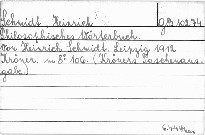 Schmidt, Heinrich GB 10274
Philosophisches Wörterbuch.
Von Heinrich Schmidt. Leipzig 1912
Kröner. m 8° 106. (Kröners Taschenaus-
gabe.)